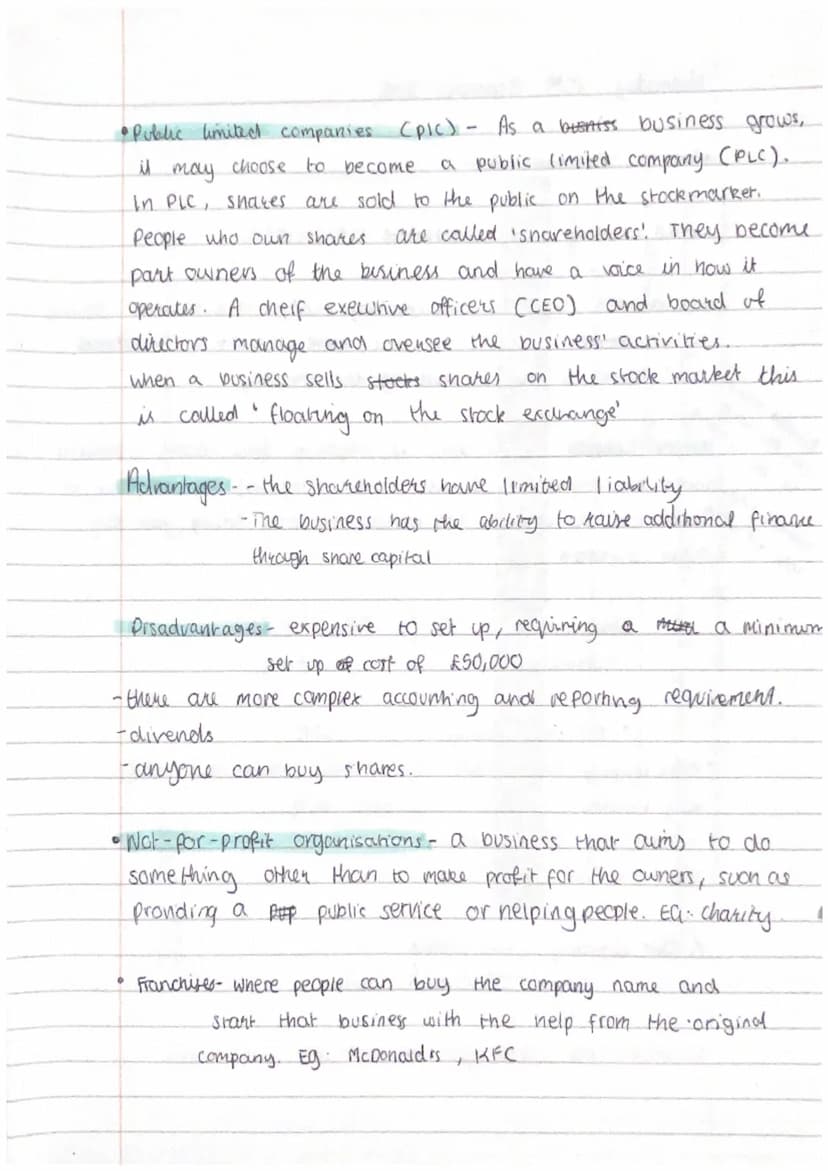 • Public limited companies (plc) - As a busniss business grows,
it may choose to become a public limited company (PLC).
In PLC, shares are sold to the public on the stockmarket.
People who own shares are called 'shareholders'. They become
part owners of the business and have a voice in how it
operates. A cheif executive officers (CEO) and board of
directors manage and oversee the business' activities.
when a business sells stocks shares on the stock market this
is called 'floating on the stock exchange'
Advantages - - the shareholders have limited liability
- The business has the ability to raise additional finance
through share capital
Disadvantages - expensive to set up, requiring a a minimum
set up of cost of £50,000
- there are more complex accounting and reporting requirement.
- divends
- anyone can buy shares.
• Not-for-profit organisations - a business that aims to do
something other than to make profit for the owners, such as
providing a public service or helping people. EG: charity.
• Franchises - where people can buy the company name and
start that business with the help from the original
company. Eg: McDonald's, KFC